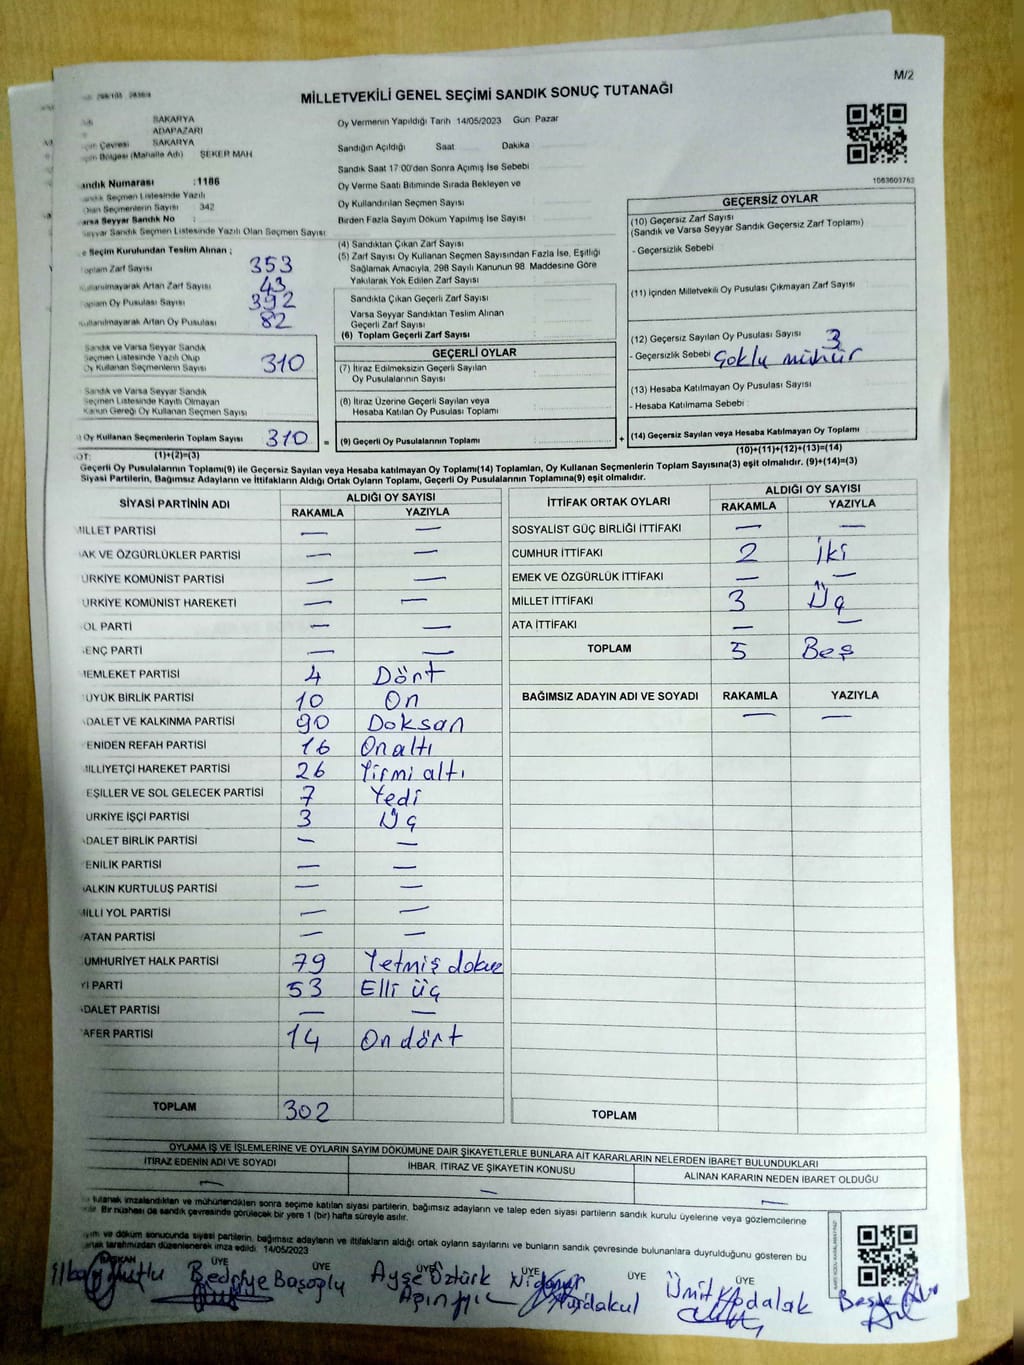 M/2
MİLLETVEKİLİ GENEL SEÇİMİ SANDIK SONUÇ TUTANAĞI
SAKARYA
ADAPAZARI
SAKARYA
ŞEKER MAH
Oy Vermenin Yapıldığı Tarih 14/05/2023 Gün Pazar
Sandığın Açıldığı Saat Dakika
Sandık Saat 17:00'den Sonra Açımış İse Sebebi
Oy Verme Saati Bitiminde Sırada Bekleyen ve
Oy Kullandırılan Seçmen Sayısı
Birden Fazla Sayım Döküm Yapılmış İse Sayısı
1063603762
andık Numarası :1186
andık Seçmen Listesinde Yazılı
Olan Seçmenlerin Sayısı 342
arsa Seyyar Sandık No :
eyyar Sandık Seçmen Listesinde Yazılı Olan Seçmen Sayısı
e Seçim Kurulundan Teslim Alınan ;
oplam Zarf Sayısı 353
ullanılmayarak Artan Zarf Sayısı 43
oplam Oy Pusulası Sayısı 392
ullanılmayarak Artan Oy Pusulası 82
Sandık ve Varsa Seyyar Sandık
Seçmen Listesinde Yazılı Olup
Oy Kullanan Seçmenlerin Sayısı 310
Sandık ve Varsa Seyyar Sandık
Seçmen Listesinde Kayıtlı Olmayan
Kanun Gereği Oy Kullanan Seçmen Sayısı
Oy Kullanan Seçmenlerin Toplam Sayısı 310 =
(1)+(2)=(3)
(4) Sandıktan Çıkan Zarf Sayısı
(5) Zarf Sayısı Oy Kullanan Seçmen Sayısından Fazla İse, Eşitliği
Sağlamak Amacıyla, 298 Sayılı Kanunun 98 Maddesine Göre
Yakılarak Yok Edilen Zarf Sayısı
Sandıkta Çıkan Geçerli Zarf Sayısı
Varsa Seyyar Sandıktan Teslim Alınan
Geçerli Zarf Sayısı
(6) Toplam Geçerli Zarf Sayısı
GEÇERLİ OYLAR
(7) İtiraz Edilmeksizin Geçerli Sayılan
Oy Pusulalarının Sayısı
(8) İtiraz Üzerine Geçerli Sayılan veya
Hesaba Katılan Oy Pusulaları Toplamı
(9) Geçerli Oy Pusulalarının Toplamı +
GEÇERSİZ OYLAR
(10) Geçersiz Zarf Sayısı
(Sandık ve Varsa Seyyar Sandık Geçersiz Zarf Toplamı)
- Geçersizlik Sebebi
(11) İçinden Milletvekili Oy Pusulası Çıkmayan Zarf Sayısı
(12) Geçersiz Sayılan Oy Pusulası Sayısı 3
- Geçersizlik Sebebi Çoklu mühür
(13) Hesaba Katılmayan Oy Pusulası Sayısı
- Hesaba Katılmama Sebebi :
(14) Geçersiz Sayılan veya Hesaba Katılmayan Oy Toplamı
(10)+(11)+(12)+(13)=(14)
Geçerli Oy Pusulalarının Toplamı(9) ile Geçersiz Sayılan veya Hesaba katılmayan Oy Toplamı(14) Toplamları, Oy Kullanan Seçmenlerin Toplam Sayısına(3) eşit olmalıdır. (9)+(14)=(3)
Siyasi Partilerin, Bağımsız Adayların ve İttifakların Aldığı Ortak Oyların Toplamı, Geçerli Oy Pusulalarının Toplamına(9) eşit olmalıdır.
SİYASİ PARTİNİN ADI ALDIĞI OY SAYISI
RAKAMLA YAZIYLA
İLLET PARTİSİ — —
AK VE ÖZGÜRLÜKLER PARTİSİ — —
ÜRKİYE KOMÜNİST PARTİSİ — —
ÜRKİYE KOMÜNİST HAREKETİ — —
OL PARTİ — —
ENÇ PARTİ — —
EMLEKET PARTİSİ 4 Dört
ÜYÜK BİRLİK PARTİSİ 10 On
DALET VE KALKINMA PARTİSİ 90 Doksan
ENİDEN REFAH PARTİSİ 16 Onaltı
İLLİYETÇİ HAREKET PARTİSİ 26 Yirmi altı
EŞİLLER VE SOL GELECEK PARTİSİ 7 Yedi
ÜRKİYE İŞÇİ PARTİSİ 3 Üç
DALET BİRLİK PARTİSİ — —
ENİLİK PARTİSİ — —
ALKIN KURTULUŞ PARTİSİ — —
İLLİ YOL PARTİSİ — —
ATAN PARTİSİ — —
UMHURİYET HALK PARTİSİ 79 Yetmiş dokuz
Yİ PARTİ 53 Elli üç
DALET PARTİSİ — —
AFER PARTİSİ 14 On dört
TOPLAM 302
İTTİFAK ORTAK OYLARI ALDIĞI OY SAYISI
RAKAMLA YAZIYLA
SOSYALİST GÜÇ BİRLİĞİ İTTİFAKI — —
CUMHUR İTTİFAKI 2 İki
EMEK VE ÖZGÜRLÜK İTTİFAKI — —
MİLLET İTTİFAKI 3 Üç
ATA İTTİFAKI — —
TOPLAM 5 Beş
BAĞIMSIZ ADAYIN ADI VE SOYADI RAKAMLA YAZIYLA
— —
TOPLAM
OYLAMA İŞ VE İŞLEMLERİNE VE OYLARIN SAYIM DÖKÜMÜNE DAİR ŞİKAYETLERLE BUNLARA AİT KARARLARIN NELERDEN İBARET BULUNDUKLARI
İTİRAZ EDENİN ADI VE SOYADI İHBAR, İTİRAZ VE ŞİKAYETİN KONUSU ALINAN KARARIN NEDEN İBARET OLDUĞU
— — —
tutanak imzalandıktan ve mühürlendikten sonra seçime katılan siyasi partilerin, bağımsız adayların ve talep eden siyasi partilerin sandık kurulu üyelerine veya gözlemcilerine
Bir nüshası da sandık çevresinde görülecek bir yere 1 (bir) hafta süreyle asılır.
ve döküm sonucunda siyasi partilerin, bağımsız adayların ve ittifakların aldığı ortak oyların sayılarını ve bunların sandık çevresinde bulunanlara duyrulduğunu gösteren bu
tarafımızdan düzenlenerek imza edildi. 14/05/2023
BAŞKAN ÜYE ÜYE ÜYE ÜYE ÜYE
Bedriye Başoğlu Ayşe Öztürk Ümit Kodalak